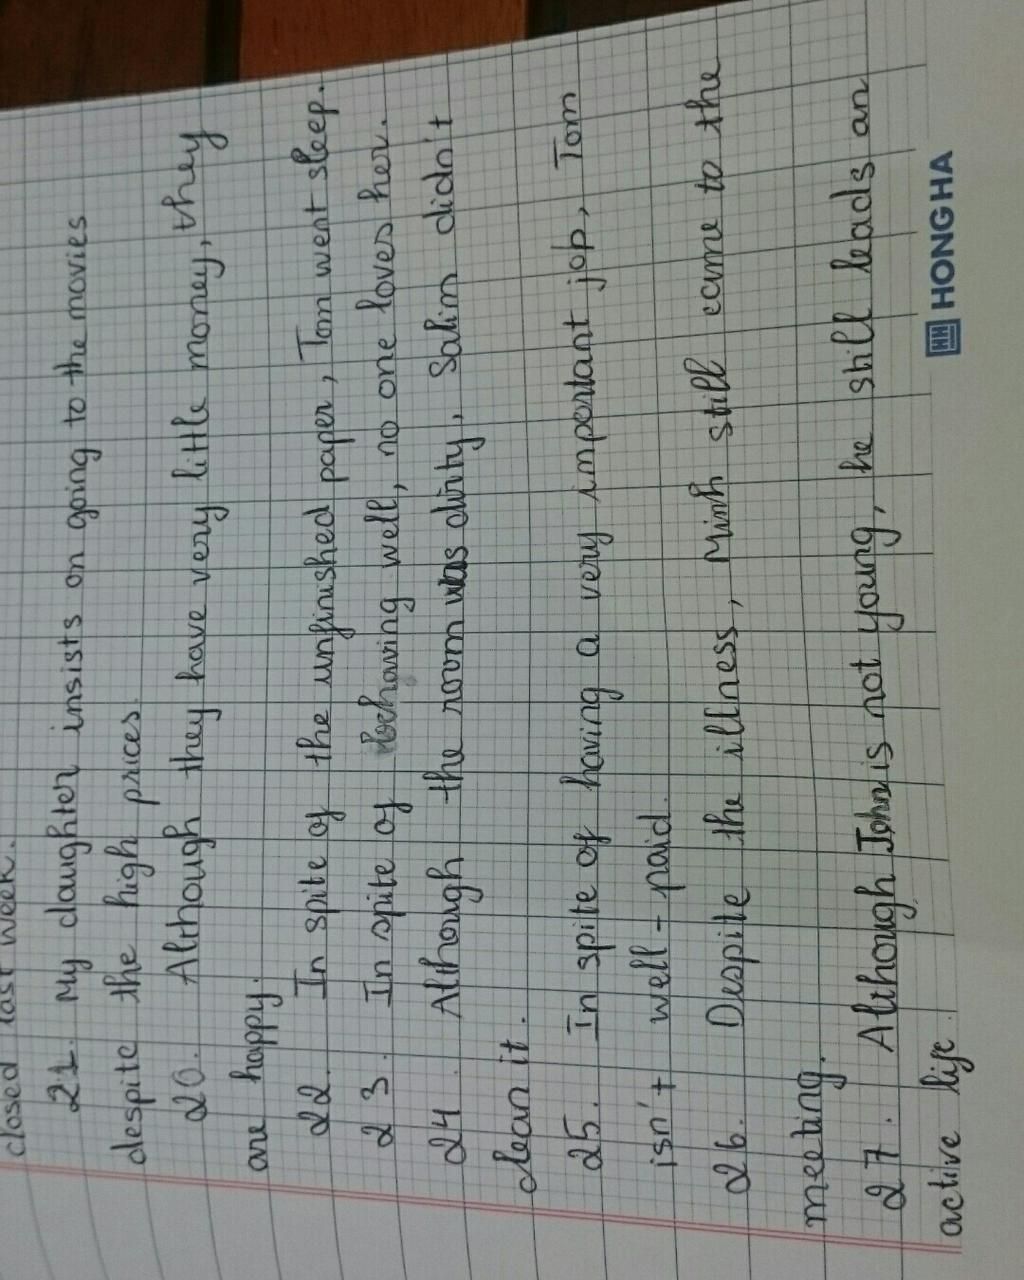 closed last week.
21. My daughter insists on going to the movies
despite the high prices
20. Although they have very little money, they
are happy.
22. In spite of the unfinished paper, Tom went sleep.
23. In spite of behaving well, no one loves her.
24. Although the room was dirty, Salim didn't
clean it.
25. In spite of having a very important job, Tom
isn't well-paid.
26. Despite the illness, Minh still came to the
meeting.
27. Although John is not young, he still leads an
active life.
HH HONG HA